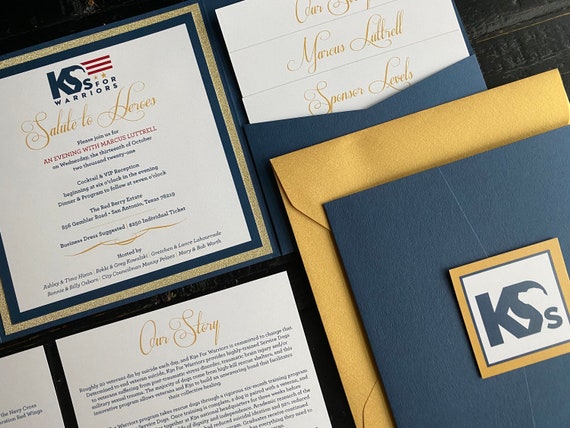 KSs FOR
WARRIORS
Salute to Heroes
Please join us for
AN EVENING WITH MARCUS LUTTRELL
on Wednesday, the thirteenth of October
two thousand twenty-one
Cocktail & VIP Reception
beginning at six o'clock in the evening
Dinner & Program to follow at seven o'clock
The Red Berry Estate
856 Gembler Road • San Antonio, Texas 78219
Business Dress Suggested | $250 Individual Ticket
Hosted by
Ashley & Timo
Bonnie & Billy Osborn | City Councilman Manny Pelaez | Mary & Bob Worth
Our Story
Marcus Luttrell
Sponsor Levels
KSs
Our Story
Roughly 20 veterans die by suicide each day, and K9s For Warriors is committed to change that.
Determined to end veteran suicide, K9s For Warriors provides highly-trained Service Dogs
to veterans suffering from post-traumatic stress disorder, traumatic brain injury and/or
military sexual trauma. The majority of dogs come from high kill rescue shelters, and this
innovative program allows veterans and K9s to build an unwavering bond that facilitates
their collective healing.
Warriors program takes rescue dogs through a rigorous six-month training program
Service Dogs. Once training is complete, a dog is paired with a veteran, and
at K9s national headquarters for three weeks before
dignity and independence. Academic research
reduced suicidal ideation and 92% reduced
Graduates receive continued
everything they need to
the Navy Cross
eration Red Wings